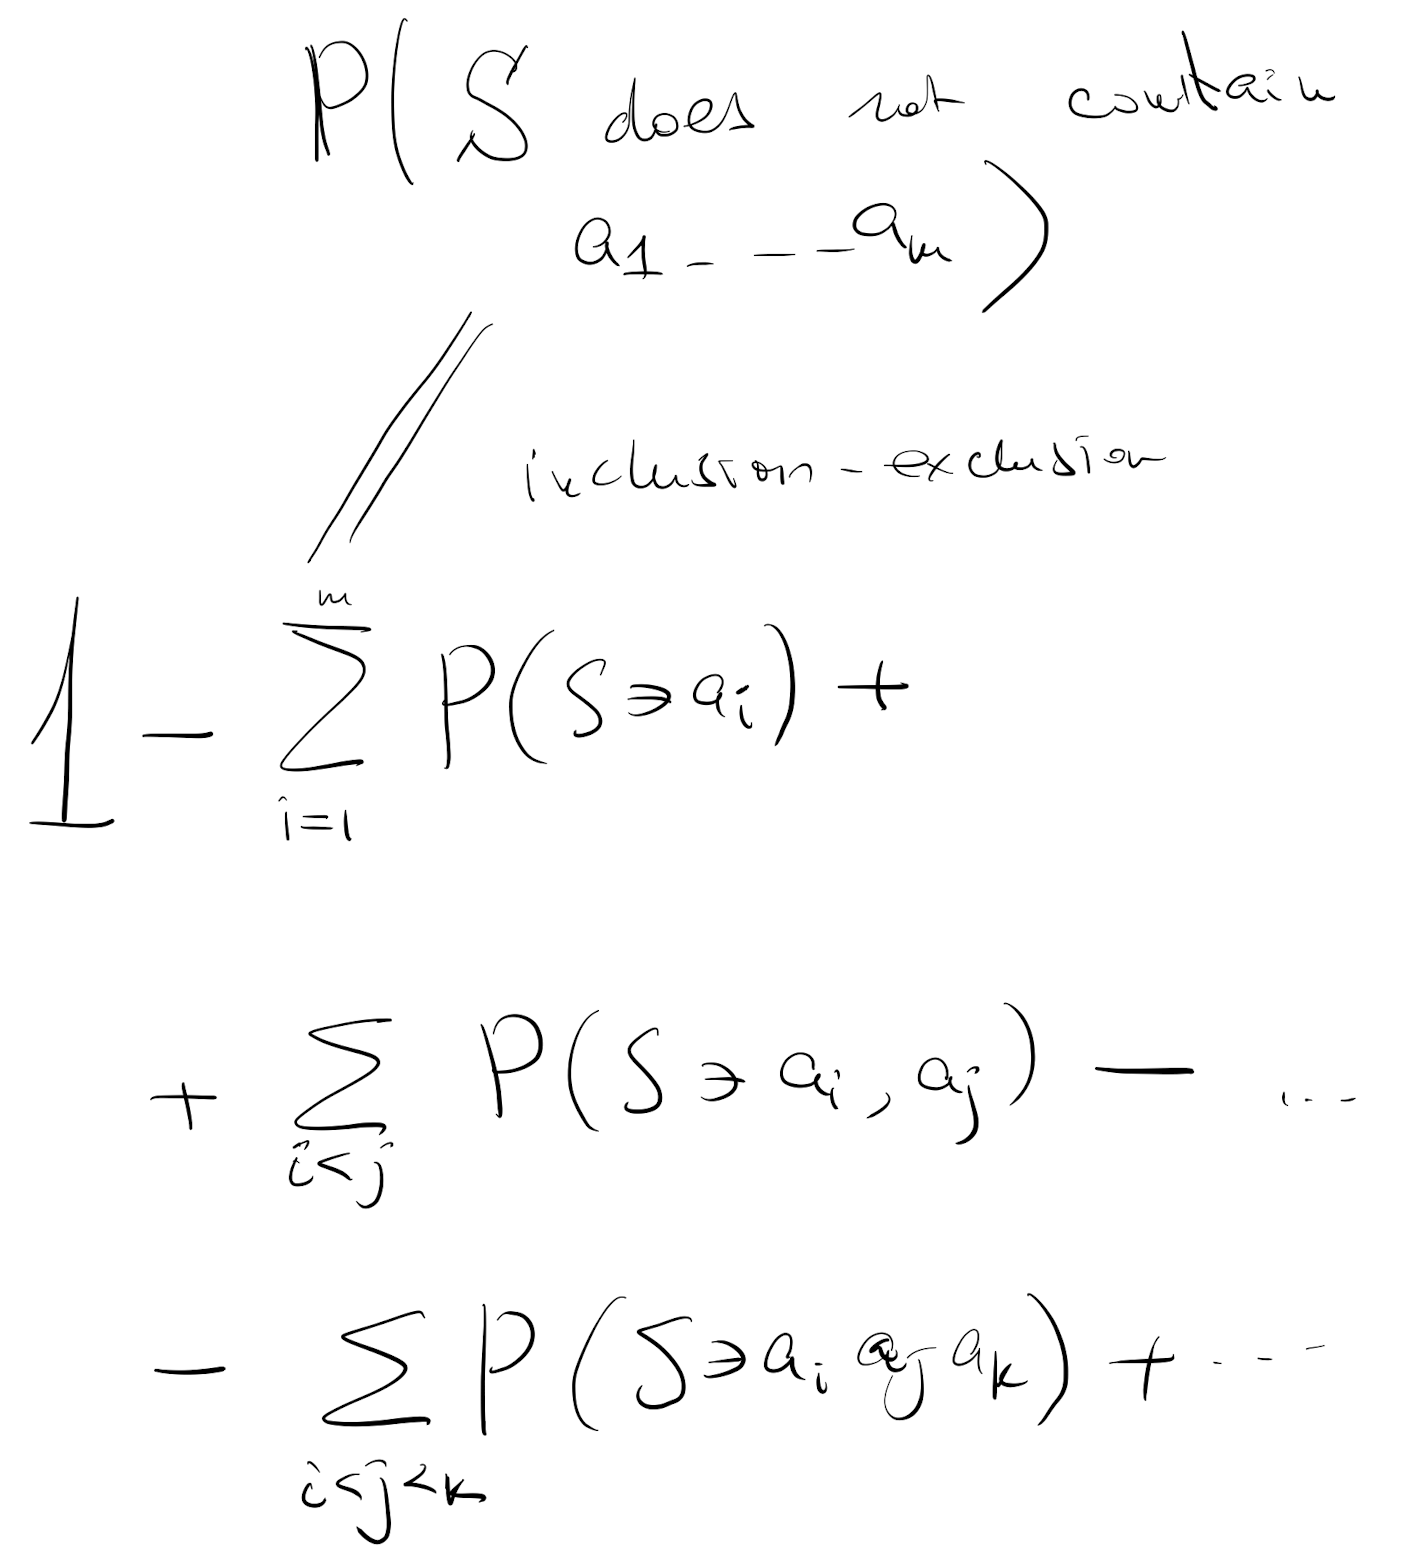 P(S does not contain
a_1 - - - a_m)
// inclusion - exclusion
1 - \sum_{i=1}^{m} P(S ∋ a_i) +
+ \sum_{i<j} P(S ∋ a_i, a_j) - ...
- \sum_{i<j<k} P(S ∋ a_i a_j a_k) + ...